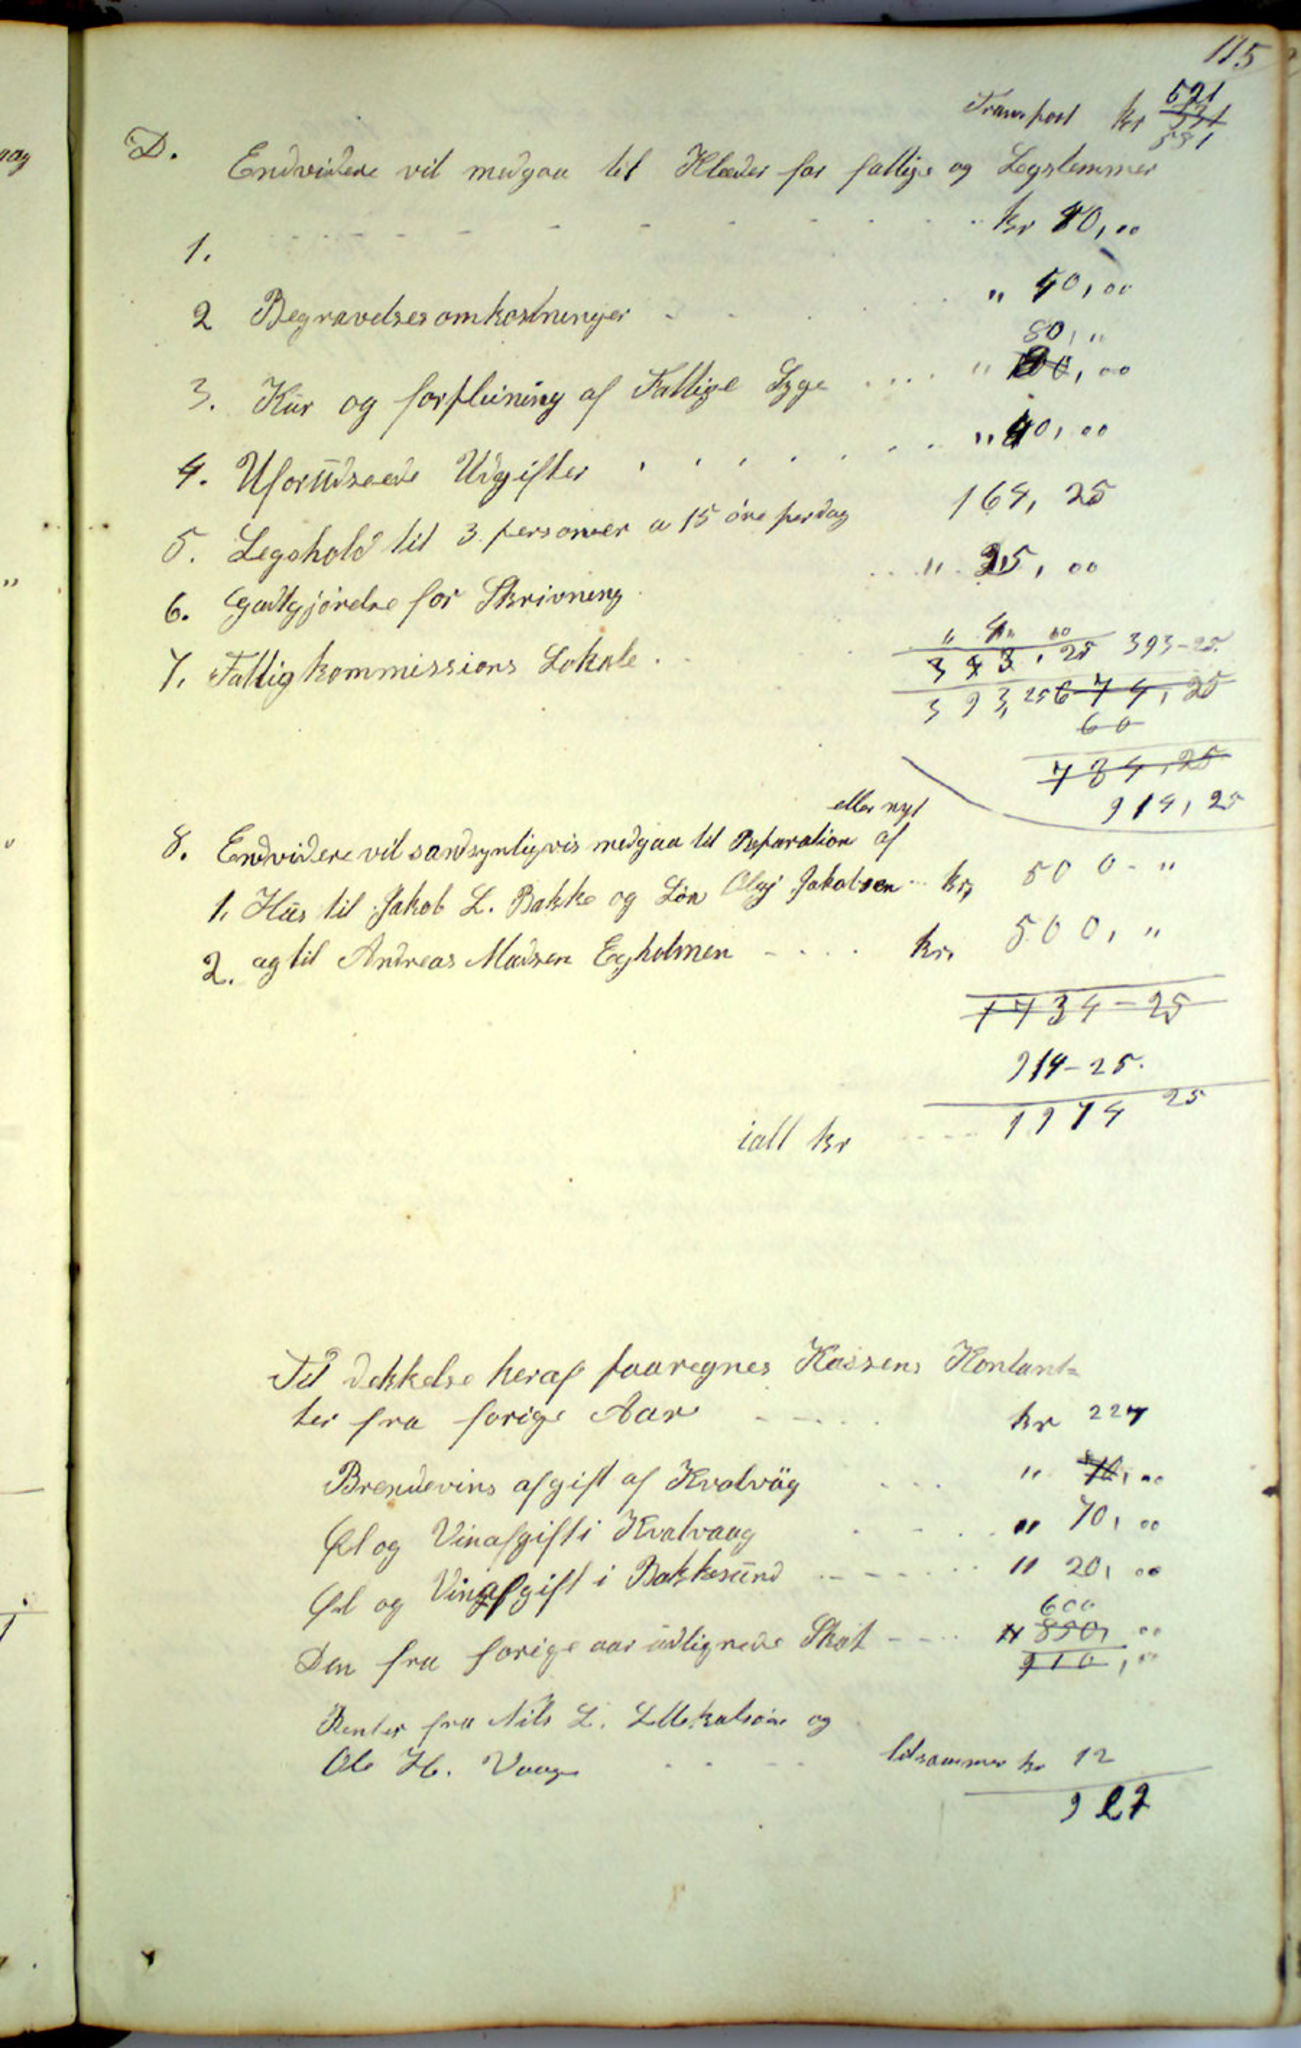 115
Transport kr 521
531
D. Endvidere vil medgaa til Klæder for fattige og Legslemmer
1. kr 40,00
2 Begravelsesomkostninger " 40,00
80, "
3. Kur og forpleining af Fattige Syge " 100,00
4. Uforudseede Udgifter " 40,00
5. Legshold til 3 personer a 15 øre per dag 164, 25
6. Godtgjørelse for Skrivning " 25,00
7. Fattigkommissions Lokale " 4 " 00
343, 25 393-25
393, 25 674, 25
60
734,25
914, 25
eller nyt
8. Endvidere vil sandsynligvis medgaa til Reparation af
1. Hus til Jakob L. Bakke og Søn Oluf Jakobsen kr, 500- "
2. og til Andreas Madsen Egholmen kr, 500, "
1734-25
914-25.
ialt kr 1974 25
Til dekkelse heraf paaregnes Kassens Kontant=
ter fra forige Aar kr 227
Brendevins afgift af Kvalvåg " 70,00
Øl og Vinafgift i Kvalvaag " 70,00
Øl og Vinafgift i Bakkesund " 20,00
600
Den fra forige aar udlignede Skat " 850,00
910,00
Renter fra Nils L. Lillekalsøen og
Ole H. Vaage tilsammen kr 12
927